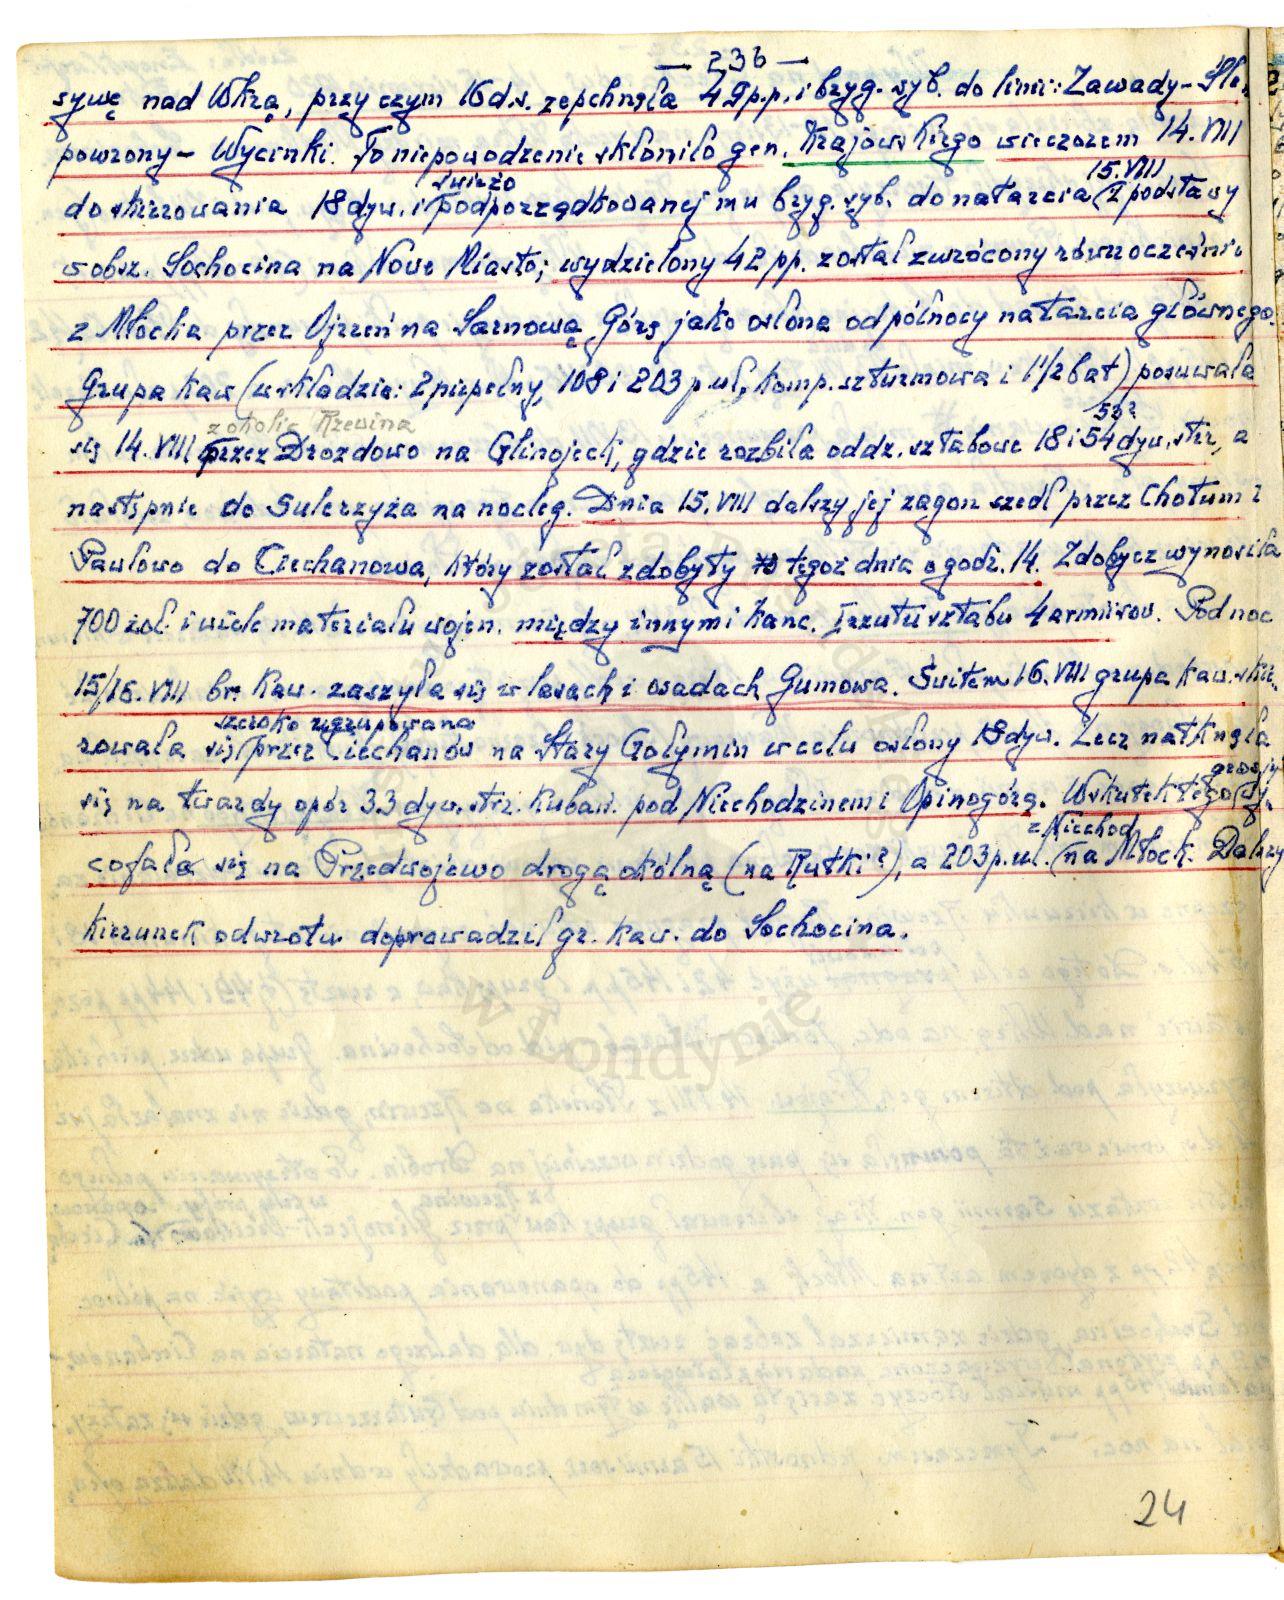 — 236 —
sywę nad Wkrą, przy czym 16 d.s. zepchnęła 49 p.p. i bryg. syb. do linii: Zawady - Śle-
powrony - Wycinki. To niepowodzenie skłoniło gen. Krajowskiego wieczorem 14.VIII
świeżo 15.VIII
do skierowania 18 dyw. i podporządkowanej mu bryg. syb. do natarcia z podstawy
w obsz. Sochocina na Nowe Miasto; wydzielony 42 pp. został zwrócony równocześnie
z Młocka przez Ojrzeń na Sarnową Górę jako osłona od północy natarcia głównego.
Grupa kaw (w składzie: 2 niepełny, 108 i 203 p.uł, komp. szturmowa i 1 1/2 bat) posuwała
z okolic Rzewina 53?
się 14.VIII przez Drozdowo na Glinojeck, gdzie rozbiła oddz. sztabowe 18 i 54 dyw. strz, a
następnie do Sulerzyża na nocleg. Dnia 15.VIII dalszy jej zagon szedł przez Chotum i
Pawłowo do Ciechanowa, który został zdobyty tegoż dnia o godz. 14. Zdobycz wynosiła
700 żoł. i wiele materiału wojen. między innymi kanc. I rzutu sztabu 4 armii sow. Pod noc
15/16.VIII br. kaw. zaszyła się w lasach i osadach Gumowa. Świtem 16.VIII grupa kaw. skie-
szeroko ugrupowana
rowała się przez Ciechanów na Stary Gołymin w celu osłony 18 dyw. Lecz natknęła
się na twardy opór 33 dyw. strz. kubań. pod Niechodzinem i Opinogórą. Wskutek tego
z Niechod.
cofała się na Przedwojewo drogą okólną (na Rutki?), a 203 p.uł. na Młock. Dalszy
kierunek odwrotu doprowadził gr. kaw. do Sochocina.
w Londynie
24